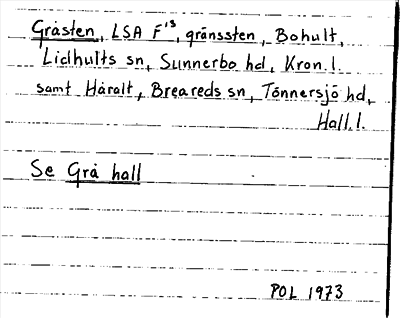 Gråsten, LSA F'3, gränssten, Bohult,
Lidhults sn, Sunnerbo hd, Kron. l.
samt Håralt, Breareds sn, Tönnersjö hd,
Hall. l.
Se Grå hall
POL 1973